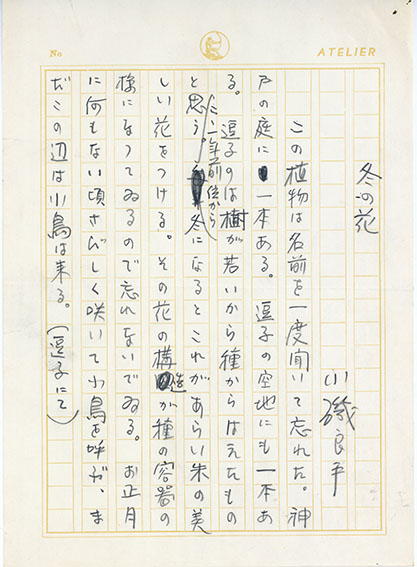 No
ATELIER
冬の花
小磯良平
この植物は名前を一度聞いて忘れた。神
戸の庭に一本ある。逗子の空地にも一本あ
る。逗子のは樹が若いから種からはえたもの
年前位から
と思う。冬になるとこれがあらい朱の美
しい花をつける。その花の構造が種の容器の
様になつてゐるので忘れないでゐる。お正月
に何もない頃さびしく咲いて小鳥を呼ぶ、ま
だこの辺は小鳥は来る。(逗子にて)